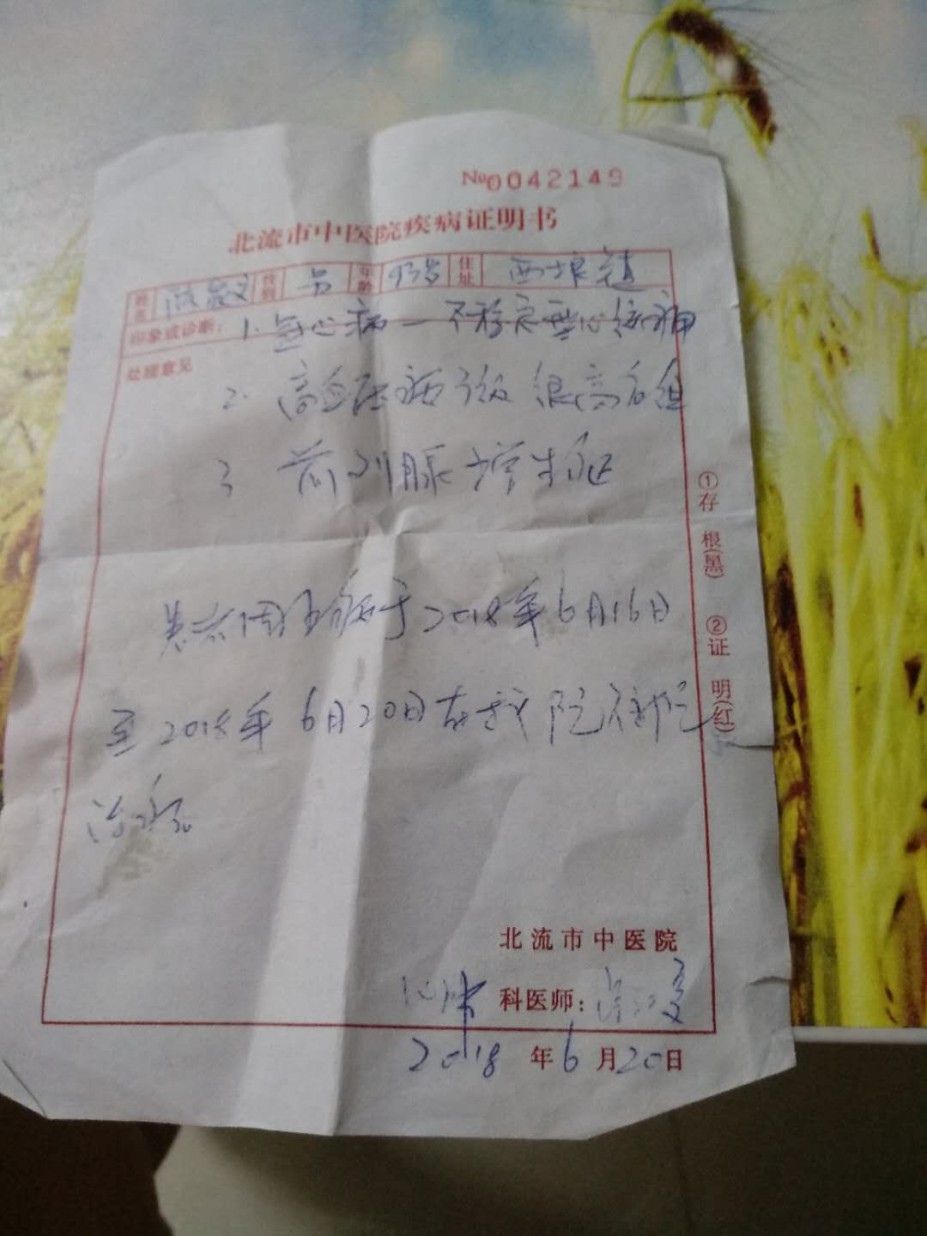 №0042149
北流市中医院疾病证明书
姓名 性别 男 年龄 93岁 住址 西埌镇
印象或诊断：1. 冠心病—不稳定型心绞痛
处理意见
2. 高血压病3级 很高危组
3 前列腺增生症
患者因上病于2018年6月16日
至2018年6月20日在我院住院
治疗
①存根(黑) ②证明(红)
北流市中医院
科医师：
2018年6月20日